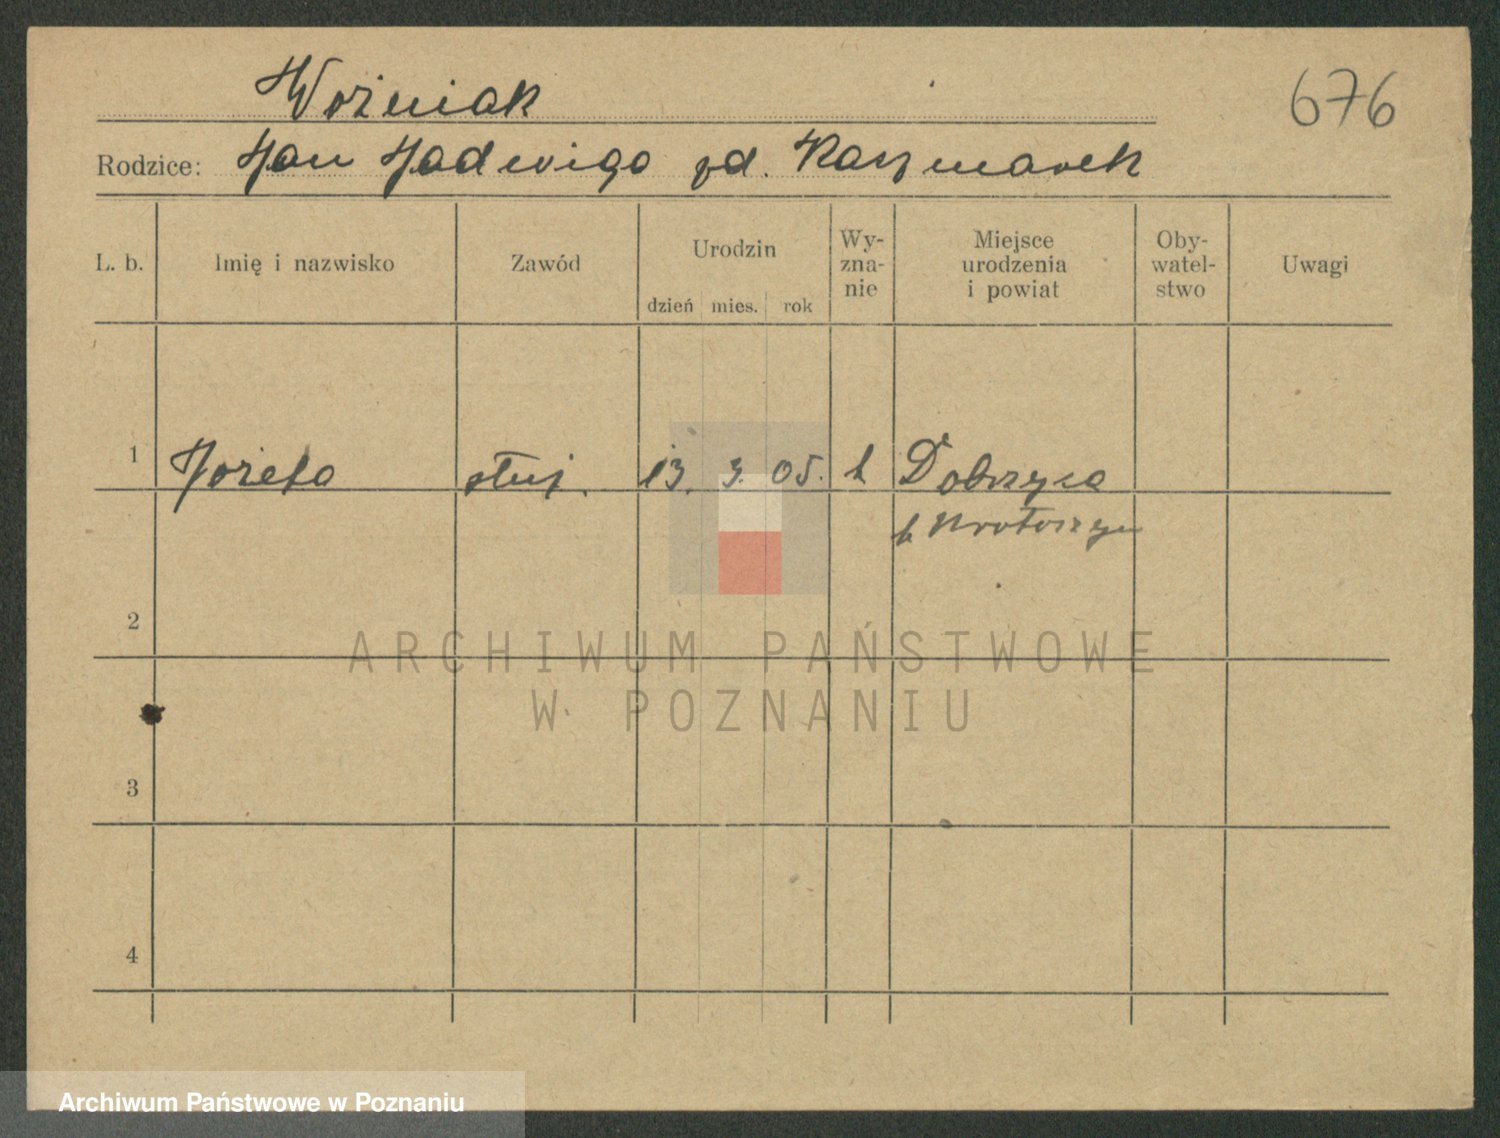 Woźniak
676
Rodzice: Jan Jadwiga zd. Kaczmarek
L. b. Imię i nazwisko Zawód Urodzin dzień mies. rok Wy-zna-nie Miejsce urodzenia i powiat Oby-watel-stwo Uwagi
1 Józefa służ. 13. 3. 05. k Dobrzyca
k Krotoszyn
2
3
4
ARCHIWUM PAŃSTWOWE
W POZNANIU
Archiwum Państwowe w Poznaniu